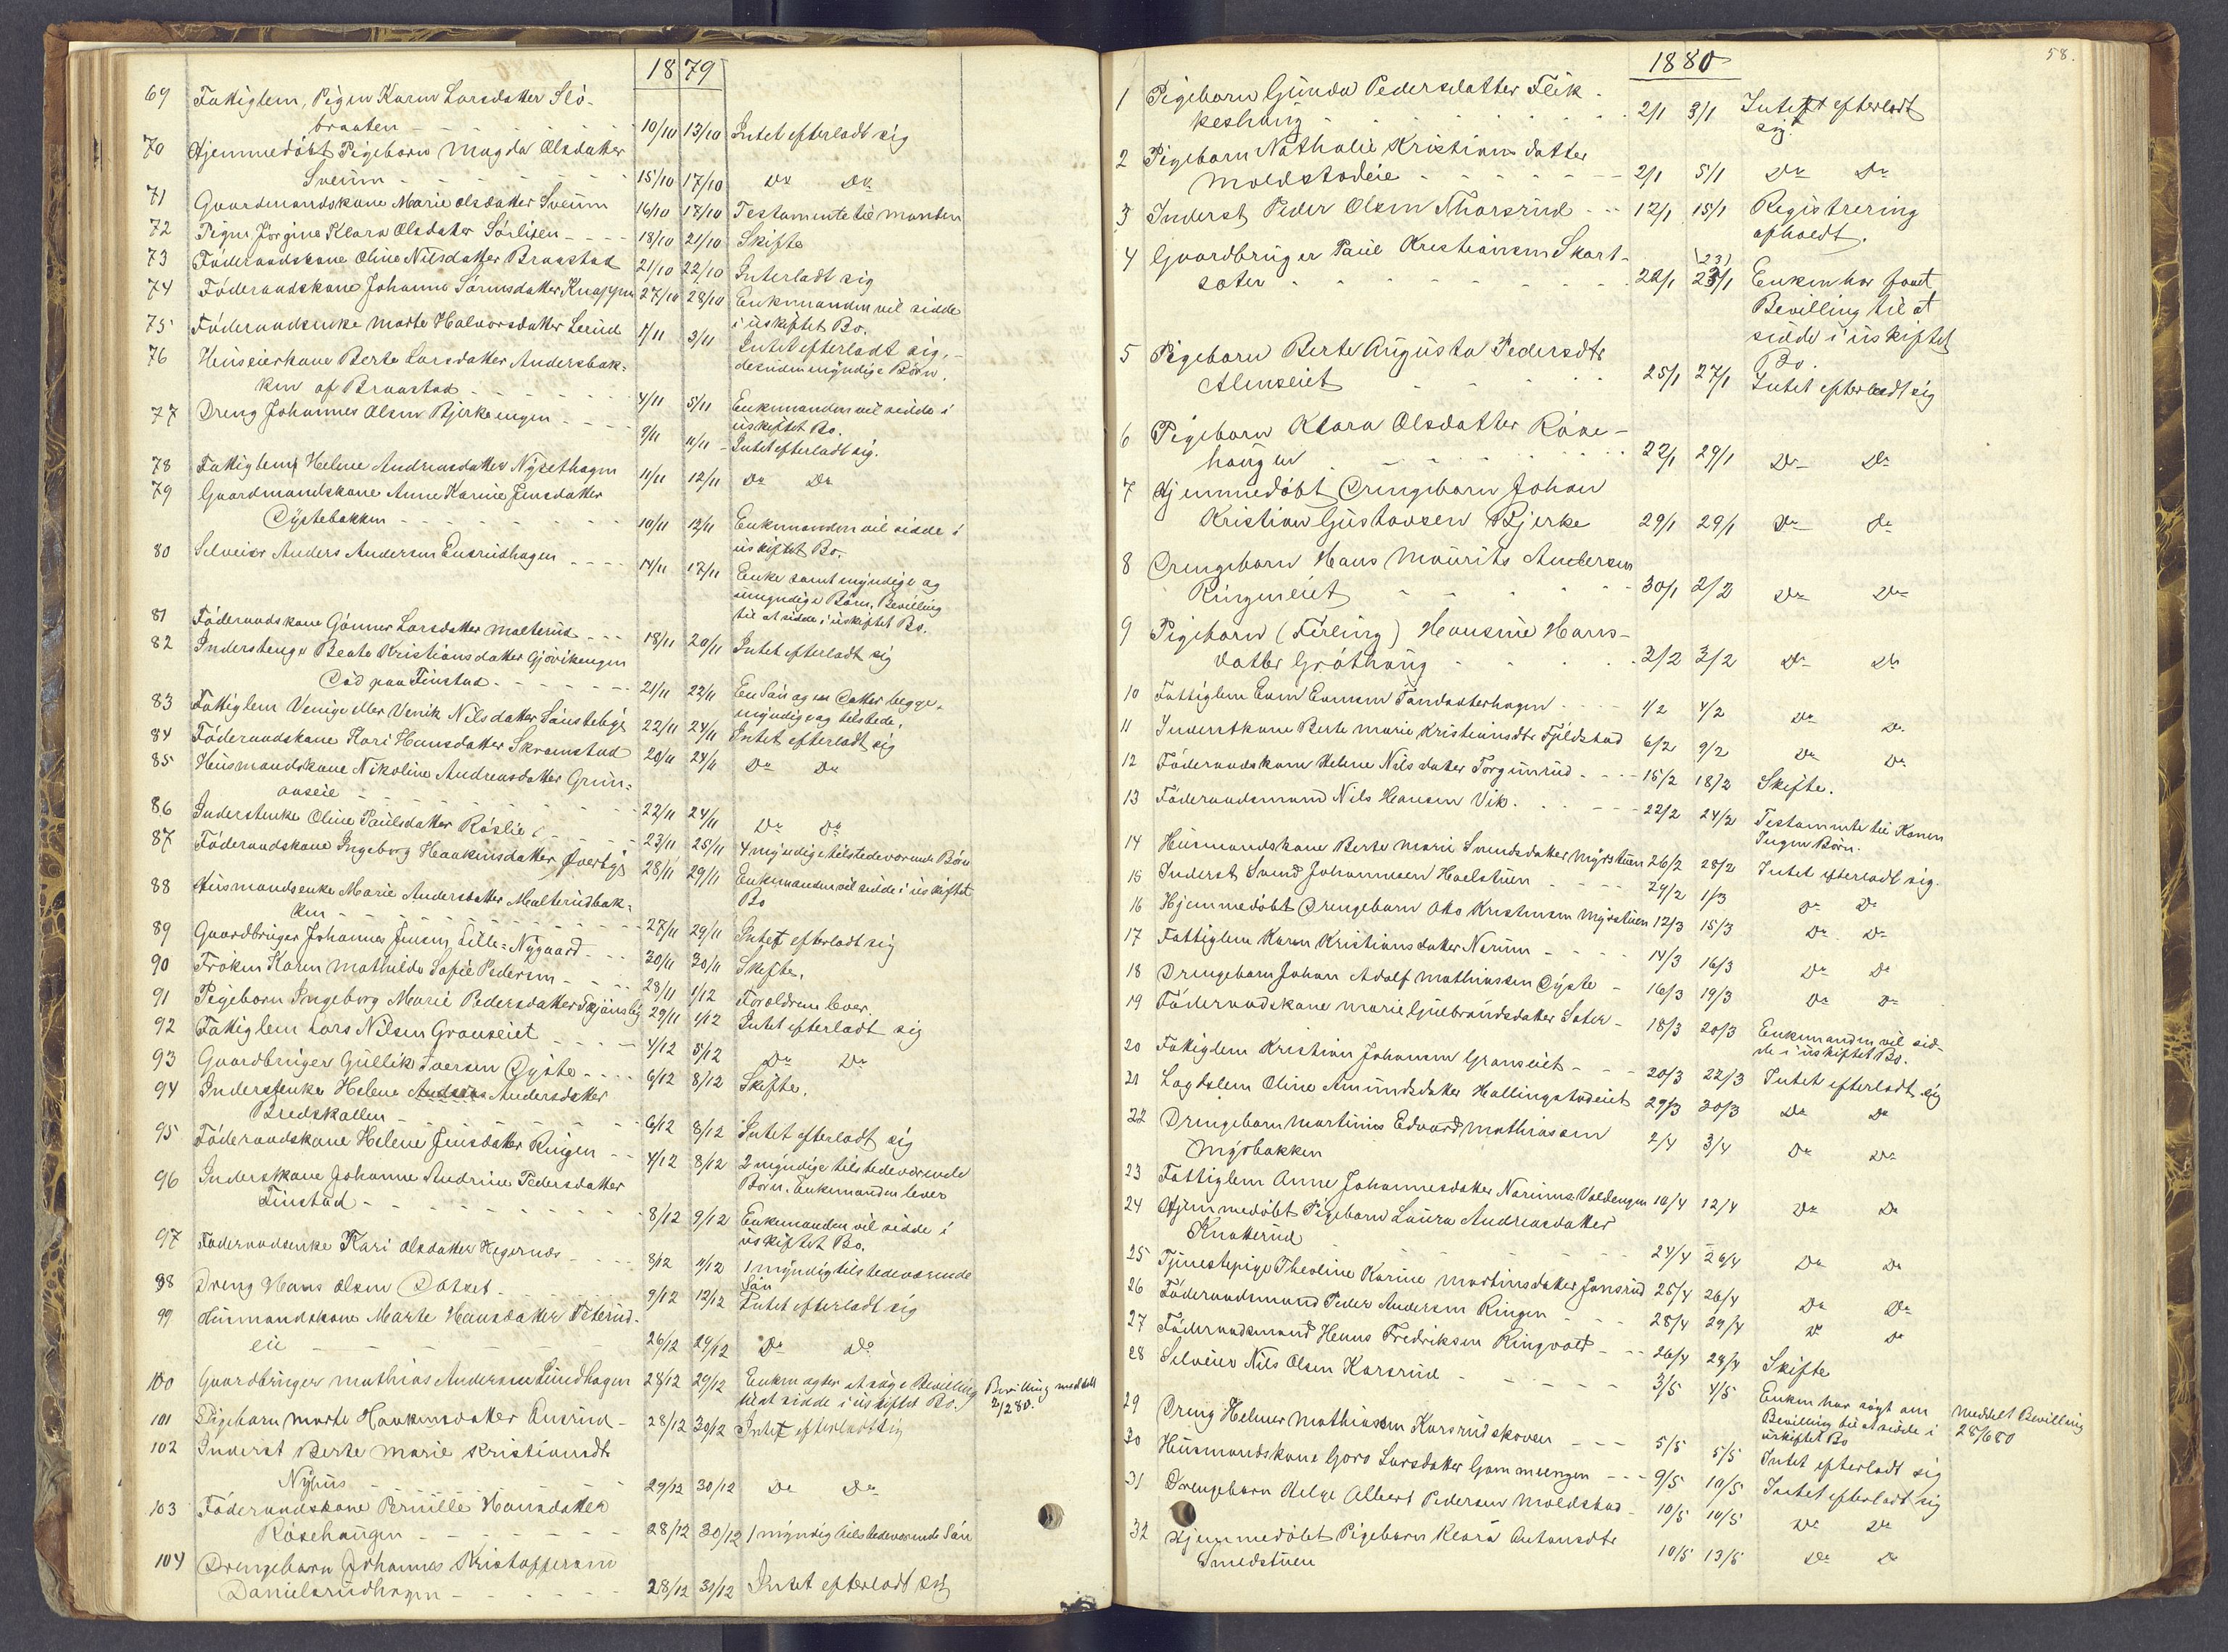 1879
69 Fattiglem, Pigen Karen Larsdatter Slö-
braaten - - - 10/10 13/10 Intet efterladt sig
70 Hjemmedöbt Pigebarn Magda Olsdatter
Sveum - - - 15/10 17/10 Do Do
71 Gaardmandskone Marie Olsdatter Sveum 16/10 18/10 Testamente til manden
72 Pigen Jörgine Klara Olsdatter Sörlien - - - 18/10 21/10 Skifte
73 Föderaadskone Oline Nilsdatter Braastad 21/10 22/10 Interladt sig
74 Föderaadskone Johanne Sörensdatter Knappen 27/10 28/10 Enkemanden vil sidde
i uskiftet Bo.
75 Föderaadsenke Marte Halvorsdatter Lerud 1/11 3/11 Intet efterladt sig, -
desuden myndige Börn.
76 Huseierkone Berte Larsdatter Andersbak-
ken af Braastad - - - 4/11 5/11 Enkemanden vil sidde i
uskiftet Bo.
77 Dreng Johannes Olsen Bjerkeengen - - - 9/11 11/11 - Intet efterladt sig.
78 Fattiglem Helene Andreasdatter Nysethagen 11/11 12/11 Do Do
79 Gaardmandskone Anne Karine Jensdatter
Dystebakken - - - 10/11 12/11 Enkemanden vil sidde i
uskiftet Bo.
80 Selveier Anders Andersen Ensrudhagen - - - 14/11 17/11 Enke samt myndige og
umyndige Börn. Bevilling
til at sidde i uskiftet Bo.
81 Föderaadskone Gönner Larsdatter Malterud - - - 18/11 20/11 Intet efterladt sig
82 Inderstenge Beate Kristiansdatter Gjövikengen
Död paa Finstad - - - 21/11 22/11 En Sön og en Datter begge
myndige og tilstede.
83 Fattiglem Venige eller Venik Nilsdatter Sönsteby 22/11 24/11 Intet efterladt sig
84 Föderaadskone Kari Hansdatter Skramstad 20/11 24/11 Do Do
85 Husmandskone Nikoline Andreasdatter Grün-
aaseie - - - 22/11 24/11 Do Do
86 Inderstenke Oline Paulsdatter Röslie - - - 23/11 25/11 4 myndige tilstedeværende Börn
87 Föderaadskone Ingeborg Haakensdatter Överby 28/11 29/11 Enkemanden vil sidde i uskiftet
Bo
88 Husmandsenke Marie Andersdatter Malterudbak-
ken - - - 27/11 29/11 Intet efterladt sig
89 Gaardbruger Johannes Jensen, Lille-Nygaard - - - 30/11 30/11 Skifte.
90 Fröken Karen Mathilde Sofie Pedersen - - - 28/11 1/12 Forældrene lever
91 Pigebarn Ingeborg Marie Pedersdatter Skjönsby 29/11 1/12 Intet efterladt sig
92 Fattiglem Lars Nilsen Granseiet - - - 4/12 5/12 Do Do
93 Gaardbruger Gullik Iversen Dyste - - - 6/12 8/12 Skifte.
94 Inderstenke Helene Andersdatter
Bredskallen - - - 6/12 8/12 Intet efterladt sig
95 Föderaadskone Helene Jensdatter Ringen - - 4/12 8/12 2 myndige tilstedeværende
Börn. Enkemanden lever
96 Inderstkone Johanne Andrine Pedersdatter
Finstad - - - 8/12 9/12 Enkemanden vil sidde i
uskiftet Bo.
97 Föderaadsenke Kari Olsdatter Hegernæs - - - 8/12 11/12 1 myndig tilstedeværende
Sön
98 Dreng Hans Olsen Dötset - - - 9/12 12/12 Intet efterladt sig
99 Husmandskone Marte Hansdatter Peterud-
eie - - - 26/12 29/12 Do Do
100 Gaardbruger Mathias Andersen Lundhagen 28/12 29/12 Enken agter at söge Bevilling Bevilling meddelt
til at sidde i uskiftet Bo. 2/1 80.
101 Pigebarn Marte Haakensdatter Ensrud - 28/12 30/12 Intet efterladt sig
102 Inderst Berte Marie Kristiansdt
Nyhus - - - 29/12 30/12 Do Do
103 Föderaadskone Pernille Hansdatter
Rösehaugen - - - 28/12 30/12 1 myndig tilstedeværende Sön
104 Drengebarn Johannes Kristoffersen
Danielsrudhagen - - - 28/12 30/12 Intet efterladt sig
58.
1880
1 Pigebarn Gunda Pedersdatter Fleik-
keshaug - - - 2/1 3/1 Intet efterladt
sig.
2 Pigebarn Nathalie Kristiansdatter
Moldstadeie - - - 2/1 5/1 Do Do
3 Inderst Peder Olsen Thorsrud - - 12/1 15/1 Registrering
afholdt.
4 Gaardbruger Paul Kristiansen Skart-
sæter - - - 22/1 23/1 Enken har faaet
Bevilling til at
sidde i uskiftet
Bo.
5 Pigebarn Berte Augusta Pedersdtr
Almseiet - - - 25/1 27/1 Intet efterladt sig
6 Pigebarn Klara Olsdatter Röne-
haugen - - - 22/1 29/1 Do Do
7 Hjemmedöbt Drengebarn Johan
Kristian Gustavsen Bjerke 29/1 29/1 Do Do
8 Drengebarn Hans Mourits Andersen
Ringseiet - - - 30/1 2/2 Do Do
9 Pigebarn (Tvilling) Hansine Hans-
datter Gröthaug - - - 2/2 3/2 Do Do
10 Fattiglem Even Evensen Tandsæterhagen - - - 1/2 4/2 Do Do
11 Inderstkone Berte Marie Kristiansdtr Fjeldstad 6/2 9/2 Do Do
12 Föderaadskone Helene Nilsdatter Torgunrud - - - 15/2 18/2 Skifte.
13 Föderaadsmand Nils Hansen Vik - - - 22/2 24/2 Testamente til Konen
Ingen Börn.
14 Husmandskone Berte Marie Svendsdatter Myrstuen 26/2 28/2 Intet efterladt sig.
15 Inderst Svend Johannesen Haelstuen - - - 29/2 1/3 Do Do
16 Hjemmedöbt Drengebarn Otto Kristiansen Myrstuen 12/3 15/3 Do Do
17 Fattiglem Karen Kristiansdatter Nerum - - - 14/3 16/3 Do Do
18 Drengebarn Johan Adolf Mathiassen Dyste - 16/3 19/3 Do Do
19 Föderaadskone Marie Gulbrandsdatter Sæter - 18/3 20/3 Enkemanden vil sid-
de i uskiftet Bo.
20 Fattiglem Kristian Johansen Granseiet - - - 20/3 22/3 Intet efterladt sig
21 Lægdslem Oline Amundsdatter Hallingstadeiet 29/3 30/3 Do Do
22 Drengebarn Martinius Edvard Mathiassen
Myrbakken 2/4 3/4 Do Do
23 Fattiglem Anne Johannesdatter Narums-Valdengen 10/4 12/4 Do Do
24 Hjemmedöbt Pigebarn Laura Andreasdatter
Knatterud - - - 24/4 26/4 Do Do
25 Tjenestepige Theoline Karine Martinsdatter Jonsrud 25/4 26/4 Do Do
26 Föderaadsmand Peder Andersen Ringen - - - 28/4 29/4 Do Do
27 Föderaadsmand Hans Fredriksen Ringvold - - 26/4 29/4 Skifte
28 Selveier Nils Olsen Korsrud - - - 3/5 4/5 Enken har sögt om Meddelt Bevilling
Bevilling til at sidde i 28/6 80
uskiftet Bo
29 Dreng Helmer Mathiassen Korsrudskoven - - - 5/5 5/5 Intet efterladt sig
30 Husmandskone Goro Larsdatter Gammeengen - - - 9/5 10/5 Intet efterladt sig
31 Drengebarn Helge Albert Pedersen Moldstad - 10/5 10/5 Do Do
32 Hjemmedöbt Pigebarn Klara Antonsdtr
Smedstuen 10/5 13/5 Do Do